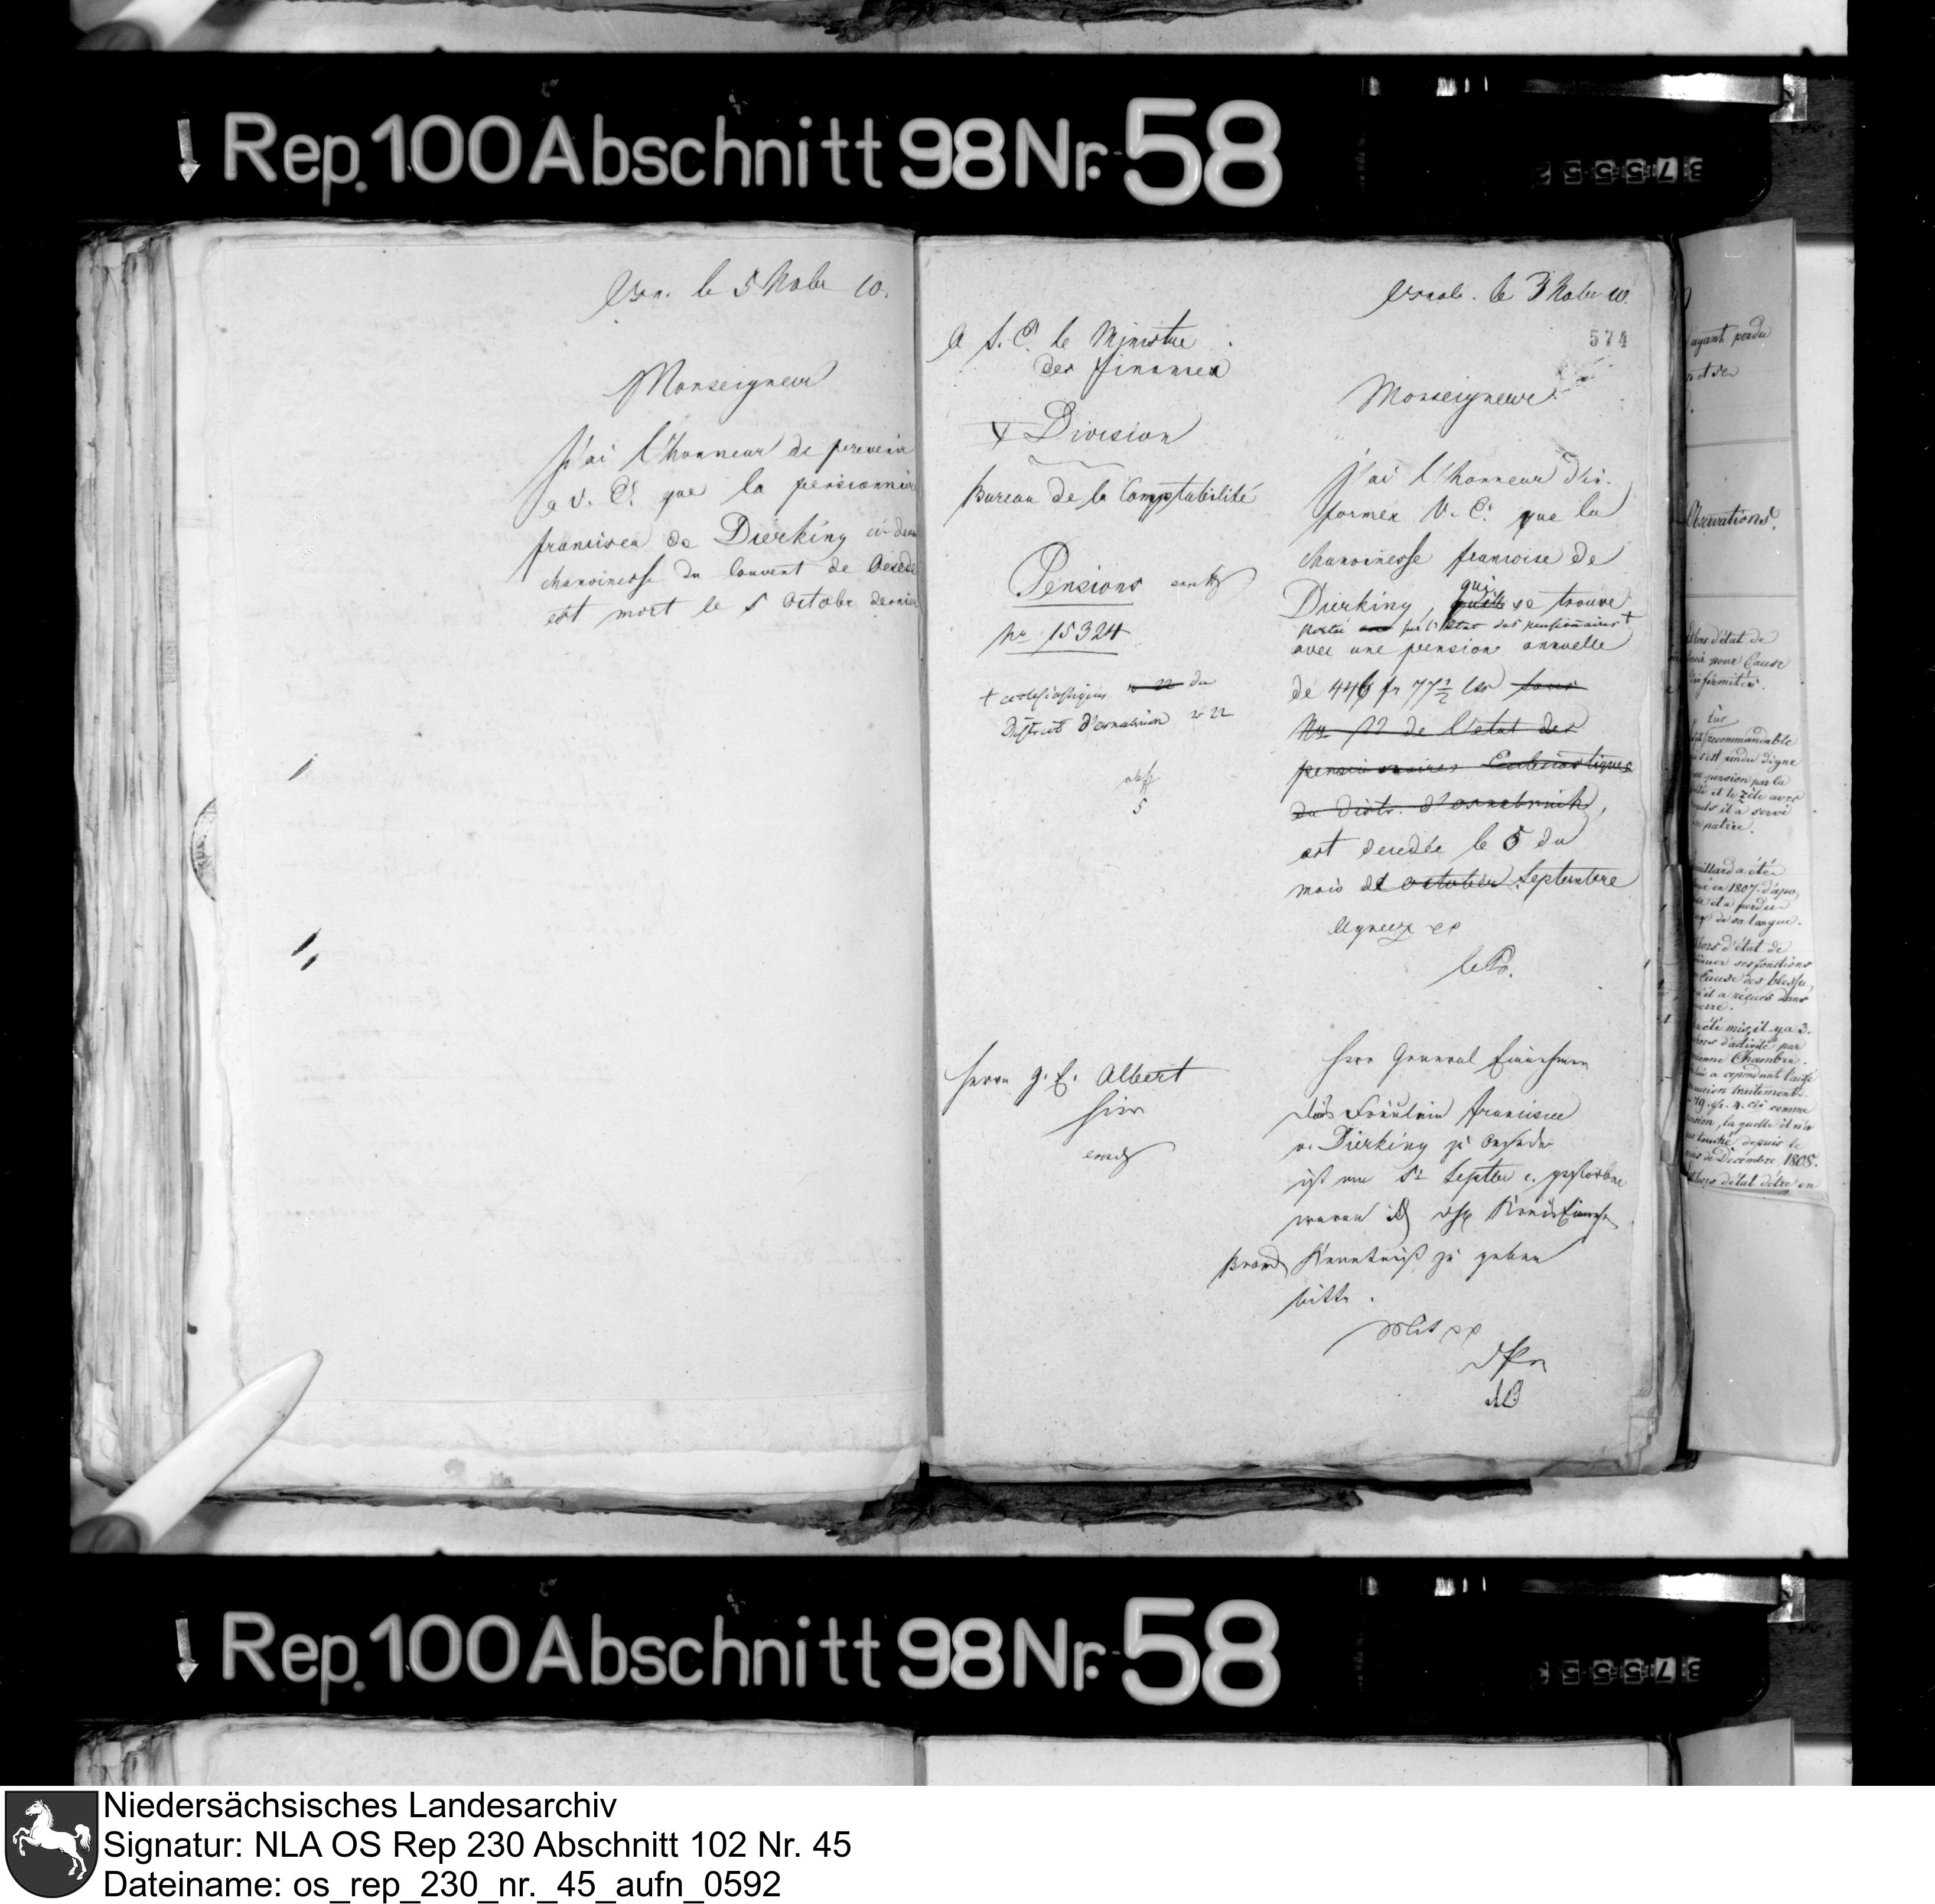 Rep. 100 Abschnitt 98 Nr. 58
37555 2
Osn. le 5 Nobr 10.
Monseigneur
J'ai l'honneur de prevenir
a V. E. que la pensionnair
francisca de Dierking ci-devan
chanoinesse du Couvent de Oesede
est mort le 5 Octobr dernier
Osnab. le 3 Nobr 10.
574
A S. E. le Ministre
des finances
Division
Bureau de la Comptabilité
Pensions
Nr. 15324
+ ecclesiastiques du
District d'Osnabruck 22
5
Monseigneur
J'ai l'honneur d'in-
former V. E. que la
chanoinesse francoise de
Dierking, qui se trouve
portée sur l'etat des pensionnaires +
avec une pension annuelle
de 446 fr 77½ Cts sous
Nr. 22 de l'etat des
pensionnaires Ecclesiastiques
du Distr. d'Osnabruck,
est decedée le 5 du
mois de octobre Septembre
Agreez
le P.
Herrn G. E. Albert
hier
Herr General Einnehmer
Das Fräulein Francisca
v. Dierking zu Oesede
ist am 5t Septbr c. gestorben
wovon ich Kreis Einnehm
Brand Kenntniß zu geben
bitte.
Mit
ayant perdu
Observations.
hors d'état de
pour Cause
d'infirmités.
recommandable
s'est rendu digne
pension par la
et le zèle avec
il a servi
patrie.
a été
en 1807 d'apo,
et a perdu
de sa langue.
hors d'état de
ses fonctions
Cause des blessu,
qu'il a réçues dans
été mis, il y a 3.
hors d'activité par
Chambre.
a cependant
comme
pension, la quelle il n'a
touché, depuis le
mois de Décembre 1808.
hors d'état d'être en
Rep. 100 Abschnitt 98 Nr. 58
37555 3
Niedersächsisches Landesarchiv
Signatur: NLA OS Rep 230 Abschnitt 102 Nr. 45
Dateiname: os_rep_230_nr._45_aufn_0592